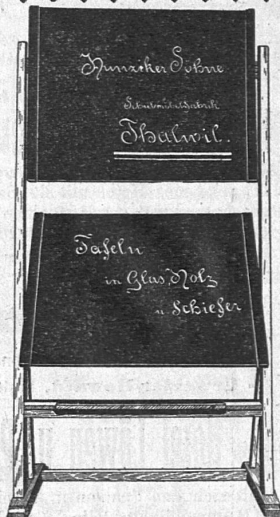 Hunziker Söhne
Schulmöbelfabrik
Thalwil.
Tafeln
in Glas, Holz
u. Schiefer